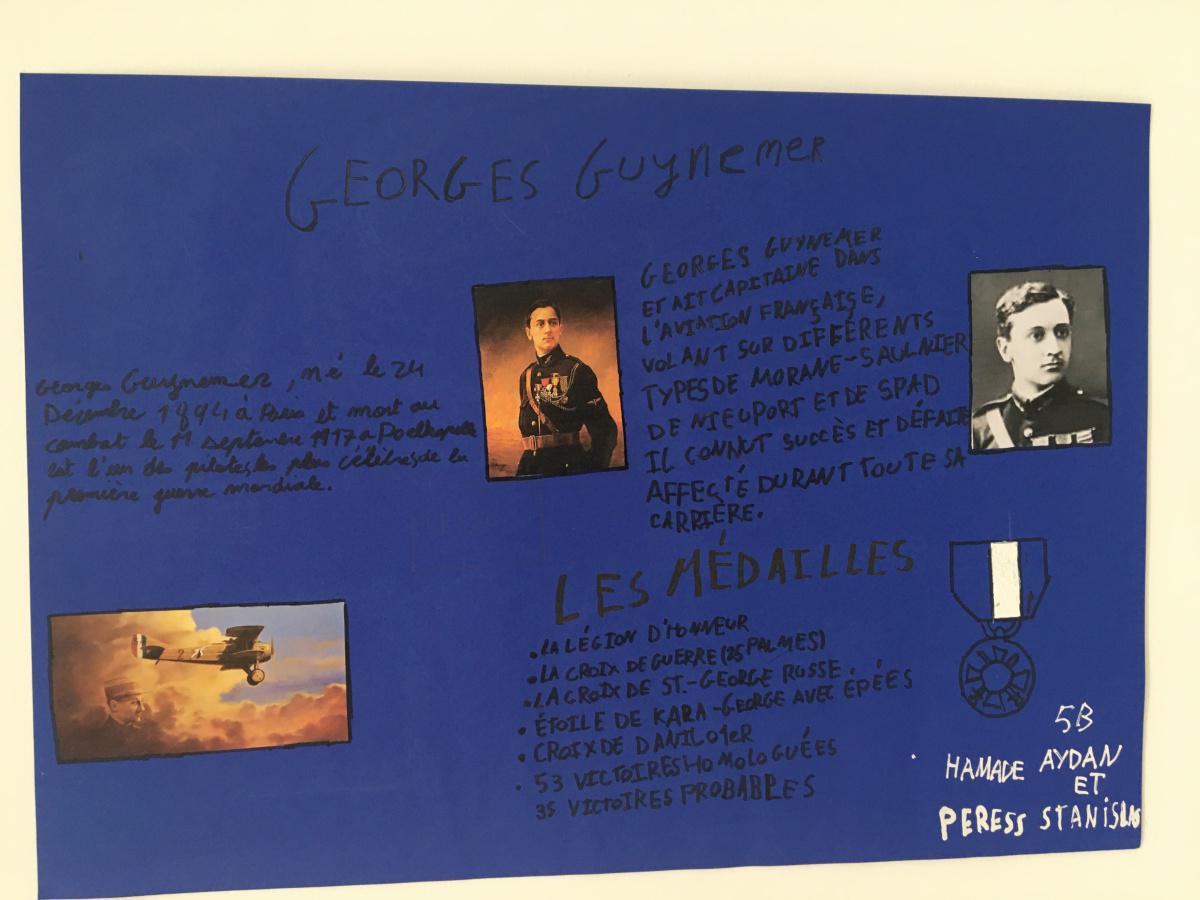 GEORGES Guynemer
Georges Guygnemer, né le 24
Décembre 1894 à Paris et mort au
combat le 11 septembre 1917 a Poelkapelle
est l'un des pilotes les plus célèbres de la
première guerre mondiale.
GEORGES GUYNEMER
ETAIT CAPITAINE DANS
L'AVIATION FRANÇAISE,
VOLANT SUR DIFFÉRENTS
TYPES DE MORANE-SAULNIER
DE NIEUPORT ET DE SPAD
IL CONNUT SUCCÈS ET DÉFAITE
AFFECTÉ DURANT TOUTE SA
CARRIÈRE.
LES MÉDAILLES
• LA LÉGION D'HONNEUR
• LA CROIX DE GUERRE (25 PALMES)
• LA CROIX DE ST.-GEORGE RUSSE
• ÉTOILE DE KARA-GEORGE AVEC ÉPÉES
• CROIX DE DANILO 1ER
• 53 VICTOIRES HOMOLOGUÉES
35 VICTOIRES PROBABLES
2
5B
HAMADE AYDAN
ET
PERESS STANISLAS